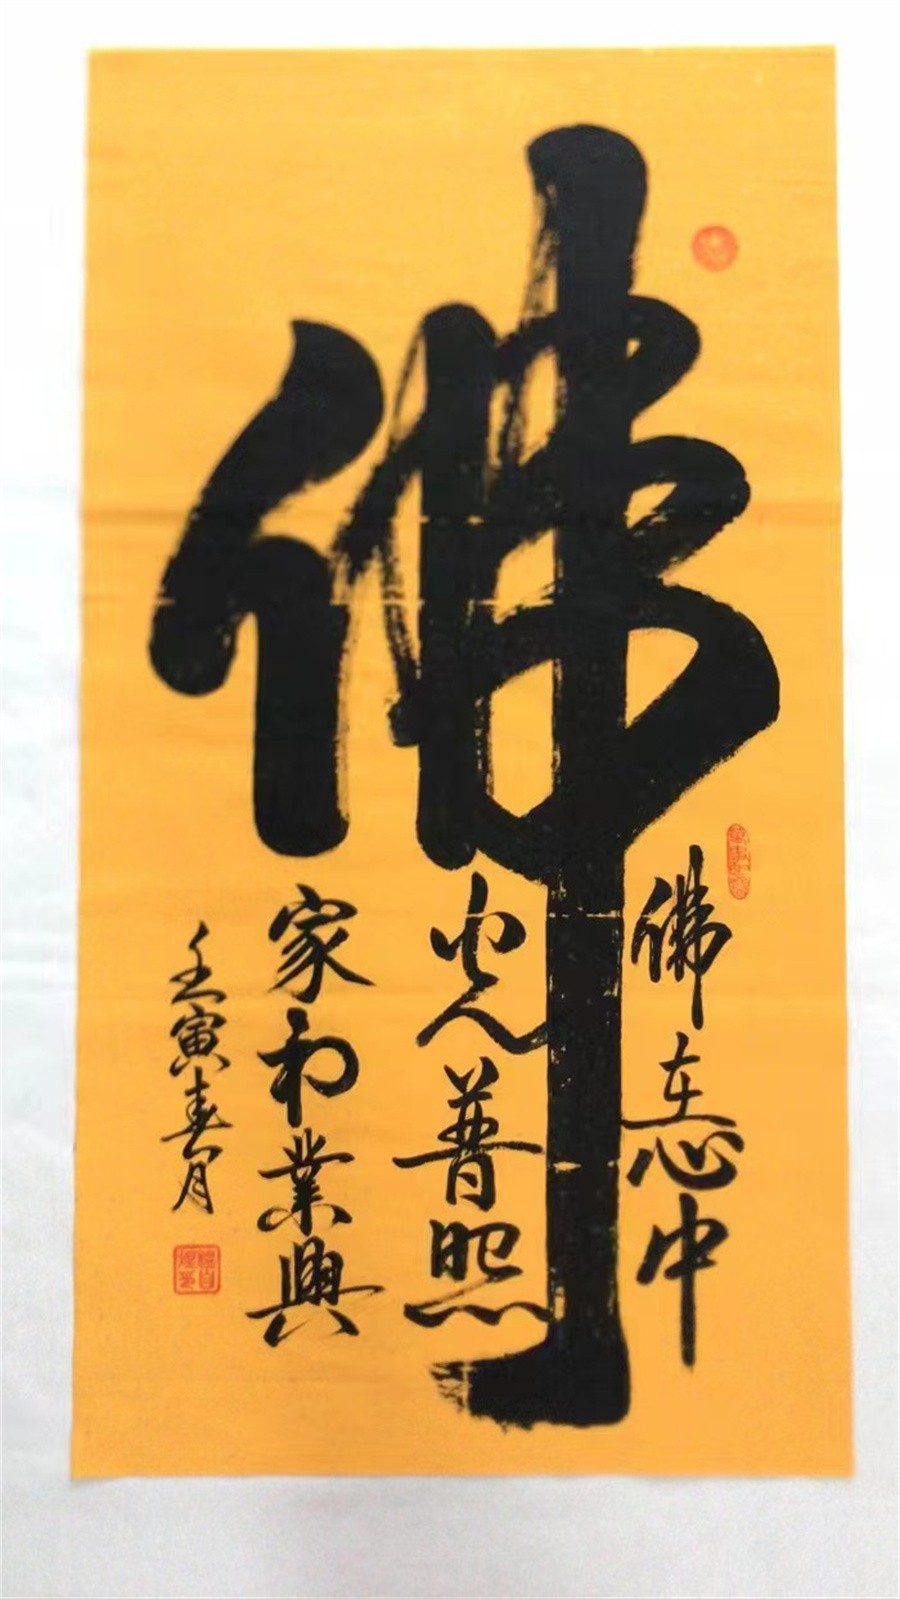 佛
佛在心中
光普照
家和業興
壬寅春月